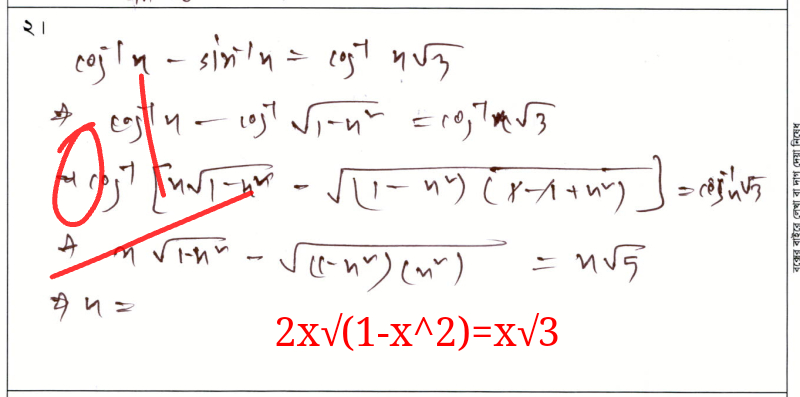 ২১
cos⁻¹x − sin⁻¹x = cos⁻¹ x√3
⇒ cos⁻¹x − cos⁻¹ √1−x² = cos⁻¹x√3
⇒ cos⁻¹ [x√1−x² − √(1−x²)(1−1+x²)] = cos⁻¹x√3
⇒ x√1−x² − √(1−x²)(x²) = x√5
⇒ x =
2x√(1-x^2)=x√3
বক্সের বাইরে লেখা বা দাগ দেয়া নিষেধ